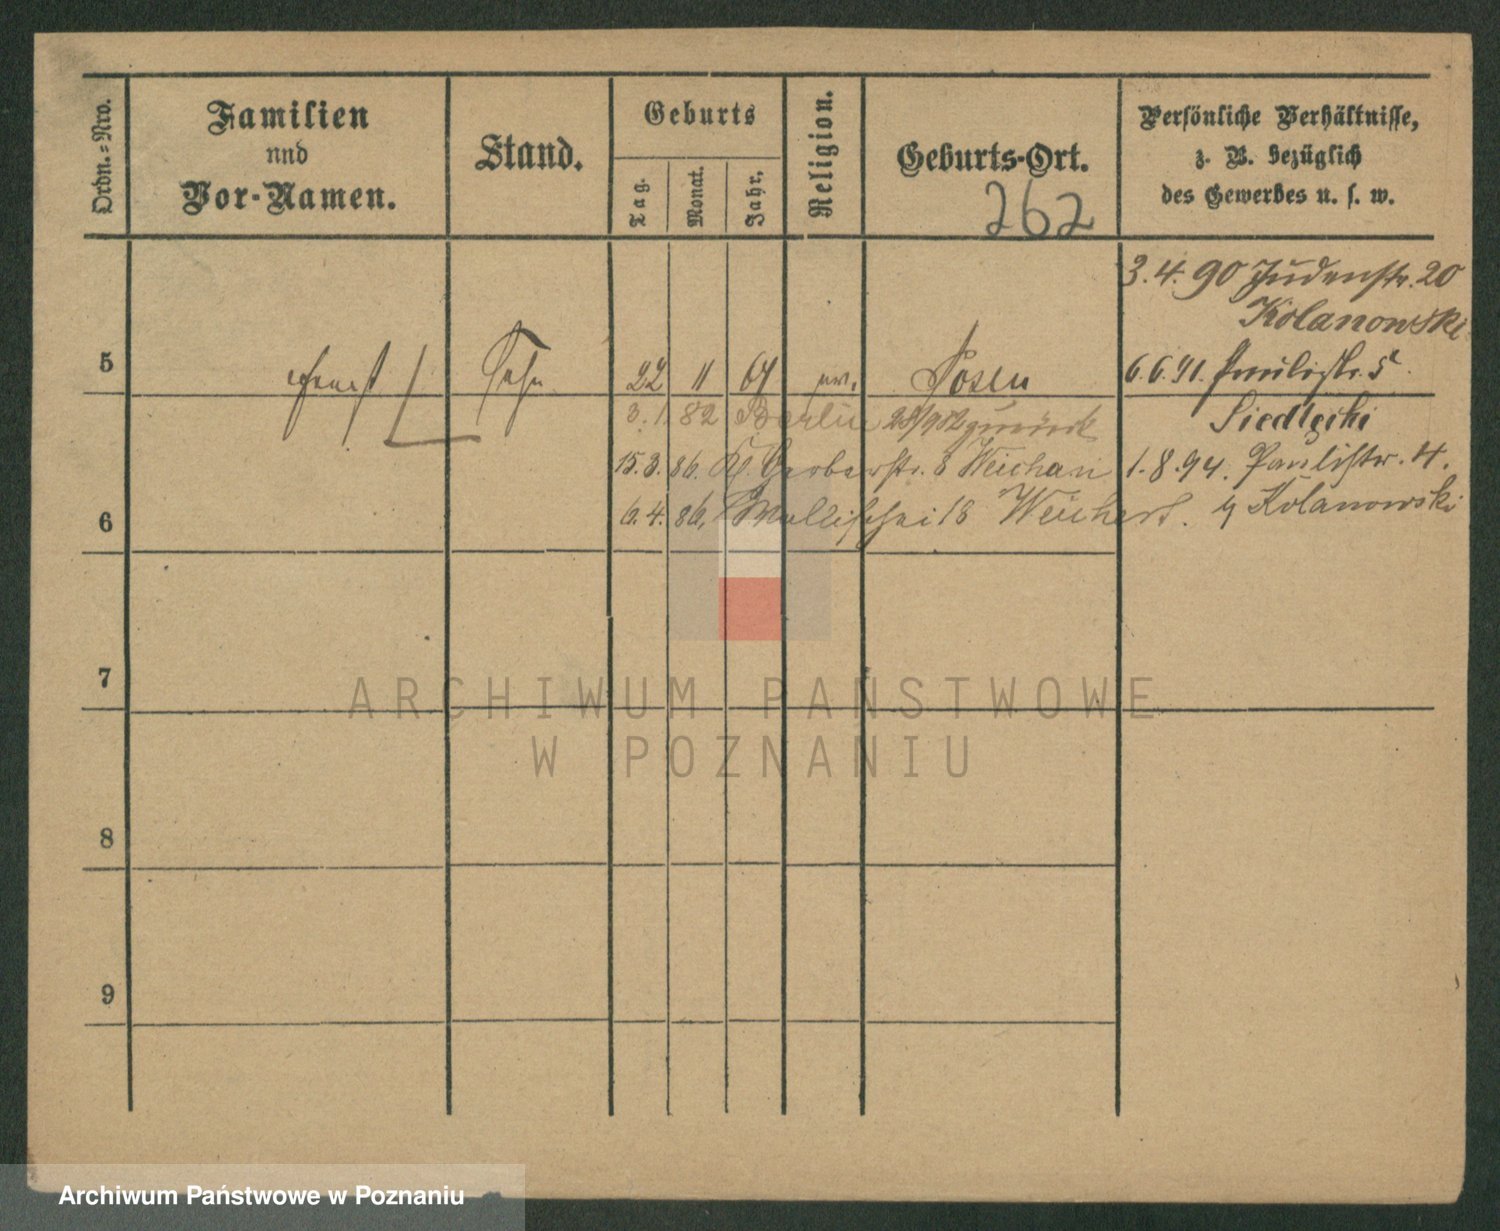 Ordn.=Nro.
Familien
und
Vor-Namen.
Stand.
Geburts
Tag.
Monat.
Jahr.
Religion.
Geburts-Ort.
262
Persönliche Verhältnisse,
z. B. bezüglich
des Gewerbes u. s. w.
3.4.90 Judenstr. 20
Kolanowski
5 Ernst Sohn 22 11 64 ev. Posen
6.6.91. Paulistr. 5
3. 1. 82 Berlin 28/9 82 zurück
Siedlecki
15.3.86. Kl. Gerberstr. 8 Weichan
1.8.94. Paulistr. 4.
6 6.4.86. Wallischei 18 Weichert.
Kolanowski
7
8
9
ARCHIWUM PAŃSTWOWE
W POZNANIU
Archiwum Państwowe w Poznaniu